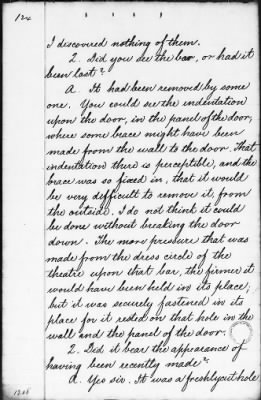 124
I discovered nothing of them.
2. Did you see the bar, or had it
been lost?
A. It had been removed by some
one. You could see the indentation
upon the door, in the panel of the door,
where some brace might have been
made from the wall to the door. That
indentation there is perceptible, and the
brace was so fixed in, that it would
be very difficult to remove it, from
the outside. I do not think it could
be done without breaking the door
down. The more pressure that was
made from the dress circle of the
theatre upon that bar, the firmer it
would have been held in its place;
but it was securely fastened in its
place for it rested on that hole in the
wall and the panel of the door.
2. Did it bear the appearance of
having been recently made?
A. Yes sir. It was a freshly cut hole